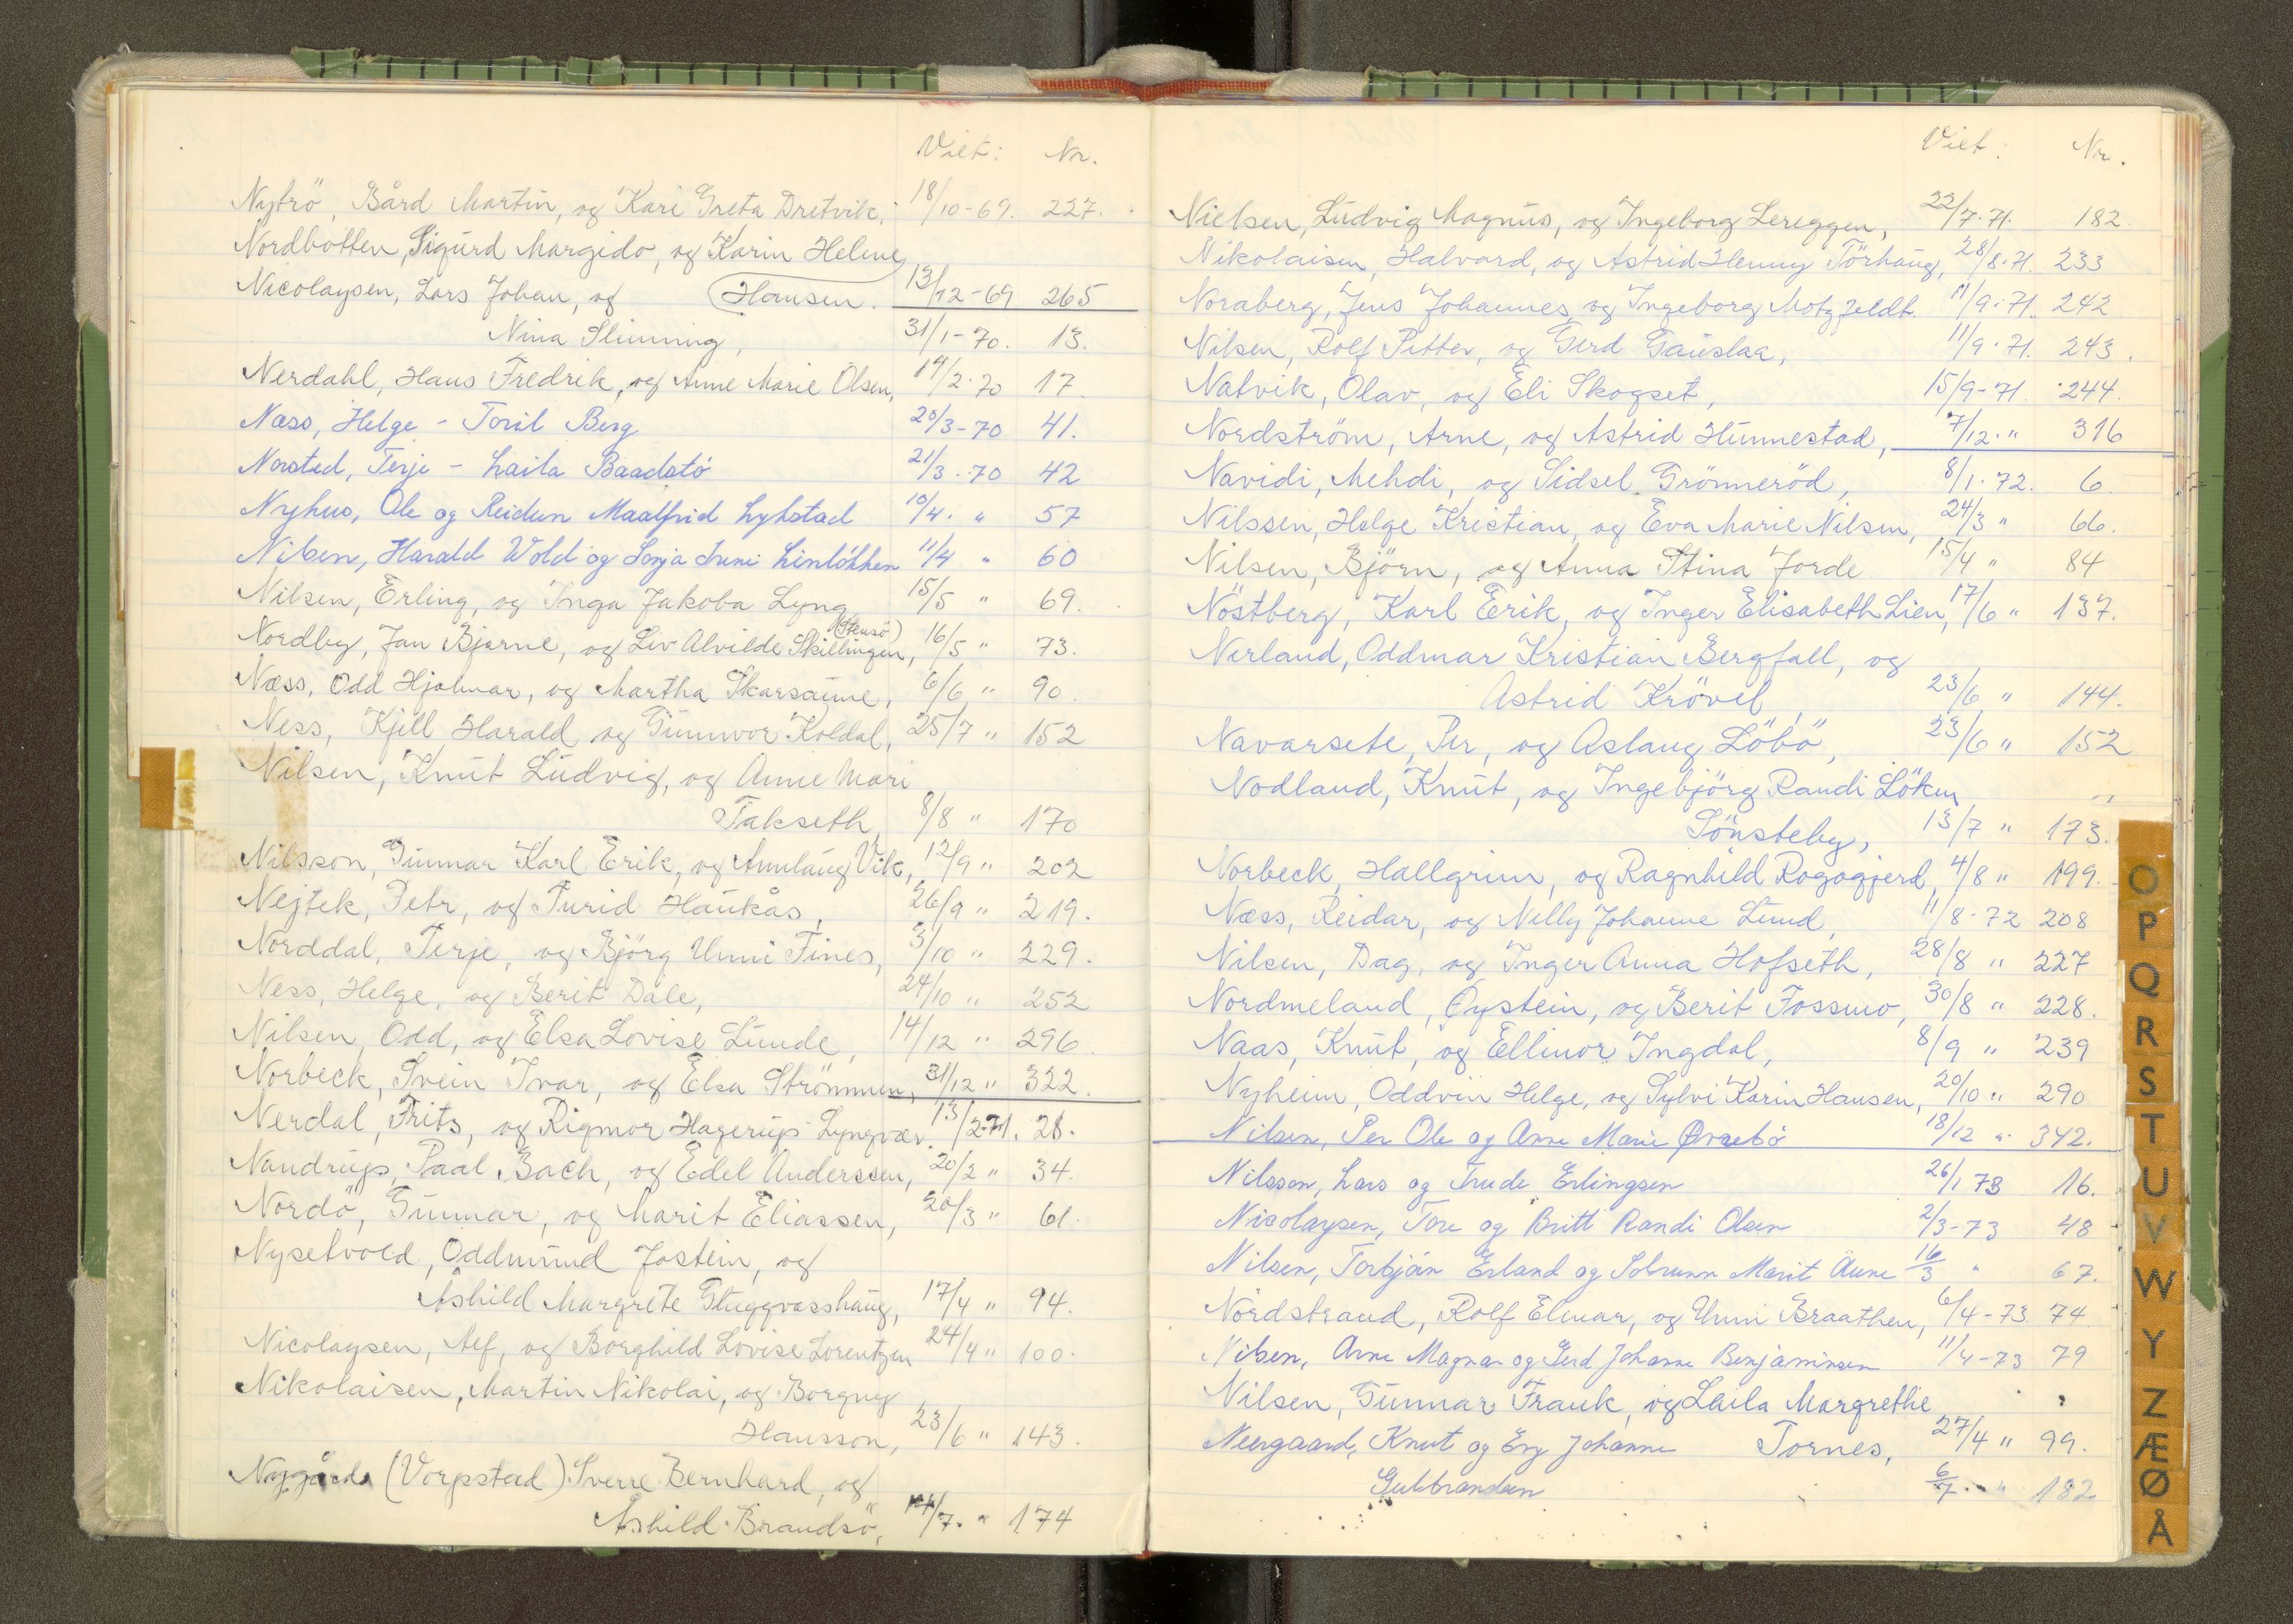 Viet: Nr.
Nytrö, Bård Martin, og Kari Greta Dretvik, 18/10-69. 227.
Nordbotten, Sigurd Margido, og Karin Helene
Hansen. 13/12-69 265
Nicolaysen, Lars Johan, og
Nina Slinning, 31/1-70. 13.
Nerdahl, Hans Fredrik, og Anne Marie Olsen, 14/2-70 17.
Næss, Helge - Toril Berg 20/3-70 41.
Norsted, Terje - Laila Baadstö 21/3-70 42
Nyhus, Ole og Reidun Maalfrid Lykstad 10/4. " 57
Nilsen, Harald Wold og Sonja Irene Linlökken 11/4 " 60
Nilsen, Erling, og Inga Jakoba Lyng 15/5 " 69.
Nordby, Jan Bjarne, og Liv Alvilde Skillingen, (Stensö) 16/5 " 73.
Næss, Odd Hjalmar, og Martha Skarsaune, 6/6 " 90.
Ness, Kjell Harald og Gunnvor Koldal, 25/7 " 152
Nilsen, Knut Ludvig, og Anne Mari
Takseth, 8/8 " 170
Nilsson, Gunnar Karl Erik, og Annlaug Vik, 12/9 " 202
Nejtek, Petr, og Turid Haukås, 26/9 " 219.
Norddal, Terje, og Björg Unni Fines, 3/10 " 229.
Ness, Helge, og Berit Dale, 24/10 " 252
Nilsen, Odd, og Elsa Lovise Lunde, 14/12 " 296.
Norbeck, Svein Ivar, og Elsa Strömmen, 31/12 " 322.
Nerdal, Frits, og Rigmor Hagerup Lyngvær. 13/2-71. 28.
Nandrup, Paal Bach, og Edel Anderssen, 20/2 " 34.
Nordö, Gunnar, og Marit Eliassen, 20/3 " 61.
Nysetvold, Oddmund Jostein, og
Åshild Margrete Stuggvasshaug, 17/4 " 94.
Nicolaysen, Alf, og Borghild Lovise Lorentzen 24/4 " 100.
Nikolaisen, Martin Nikolai, og Borgny
Hansson, 23/6 " 143.
Nygårds (Vorpstad) Sverre Bernhard, og
Åshild Brandsö, /7. " 174
Viet: Nr.
Nielsen, Ludvig Magnus, og Ingeborg Lereggen, 22/7-71. 182.
Nikolaisen, Halvard, og Astrid Henny Törhaug, 28/8-71. 233
Noraberg, Jens Johannes, og Ingeborg Motzfeldt 11/9-71. 242
Nilsen, Rolf Petter, og Gerd Gauslaa, 11/9-71. 243.
Natvik, Olav, og Eli Skogset, 15/9-71. 244.
Nordström, Arne, og Astrid Hunnestad, 7/12-" 316
Navidi, Mehdi, og Sidsel Grönneröd, 8/1-72. 6.
Nilssen, Helge Kristian, og Eva Marie Nilsen, 24/3 " 66.
Nilsen, Björn, og Anna Stina Jorde 15/4 " 84
Nöstberg, Karl Erik, og Inger Elisabeth Lien, 17/6 " 137.
Nerland, Oddmar Kristian Bergfall, og
Astrid Krövel, 23/6 " 144.
Navarsete, Per, og Aslaug Löbö, 23/6 " 152
Nodland, Knut, og Ingebjörg Randi Löken
Sönsteby, 13/7 " 173.
Norbeck, Hallgrim, og Ragnhild Rogogjerd, 4/8 " 199.
Næss, Reidar, og Nelly Johanne Lund, 11/8-72 208
Nilsen, Dag, og Inger Anna Hofseth, 28/8 " 227
Nordmeland, Öystein, og Berit Fossmo, 30/8 " 228.
Naas, Knut, og Ellinor Ingdal, 8/9 " 239
Nyheim, Oddvin Helge, og Sylvi Karin Hansen, 20/10 " 290
Nilsen, Per Ole og Anne Marie Övrebö 18/12 " 342.
Nilsson, Lars og Trude Erlingsen 26/1 73 16.
Nicolaysen, Tore og Britt Randi Olsen 2/3-73 48
Nilsen, Torbjön Erland og Solrunn Marit Aune 16/3 " 67.
Nordstrand, Rolf Elmar, og Unni Braathen, 6/4-73 74
Nilsen, Arne Magnar og Gerd Johanne Benjaminsen 11/4-73 79
Nilsen, Gunnar Frank, og Laila Margrethe
Tornes, 27/4 " 99.
Neergaard, Knut og Eny Johanne
Gulbrandsen 6/7 " 182
O
P
Q
R
S
T
U
V
W
Y
Z
Æ
Ø
Å